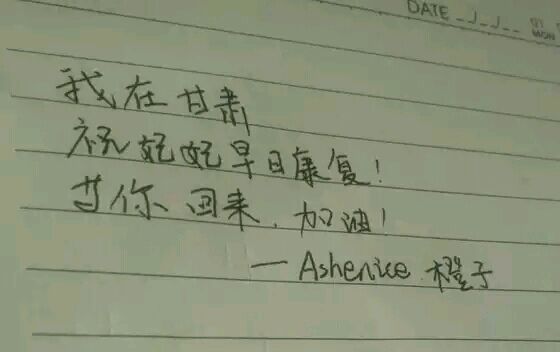 DATE
MON
我在甘肃
祝妃妃早日康复!
等你回来,加油!
—Ashenice 橙子